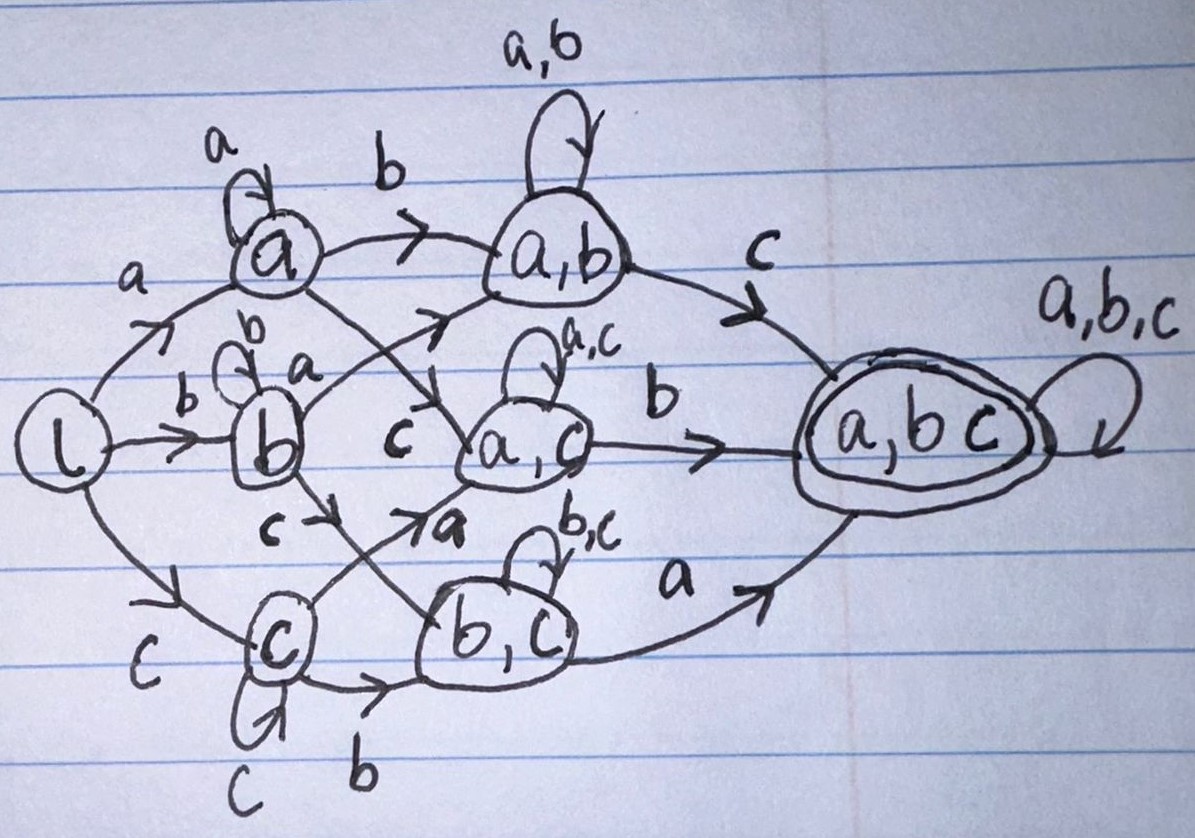 a,b
a
b
a
a
a,b
c
a,b,c
b
a
a,c
b
b
l
b
c
a,c
a,b c
c
a
b,c
a
c
c
b,c
c
b